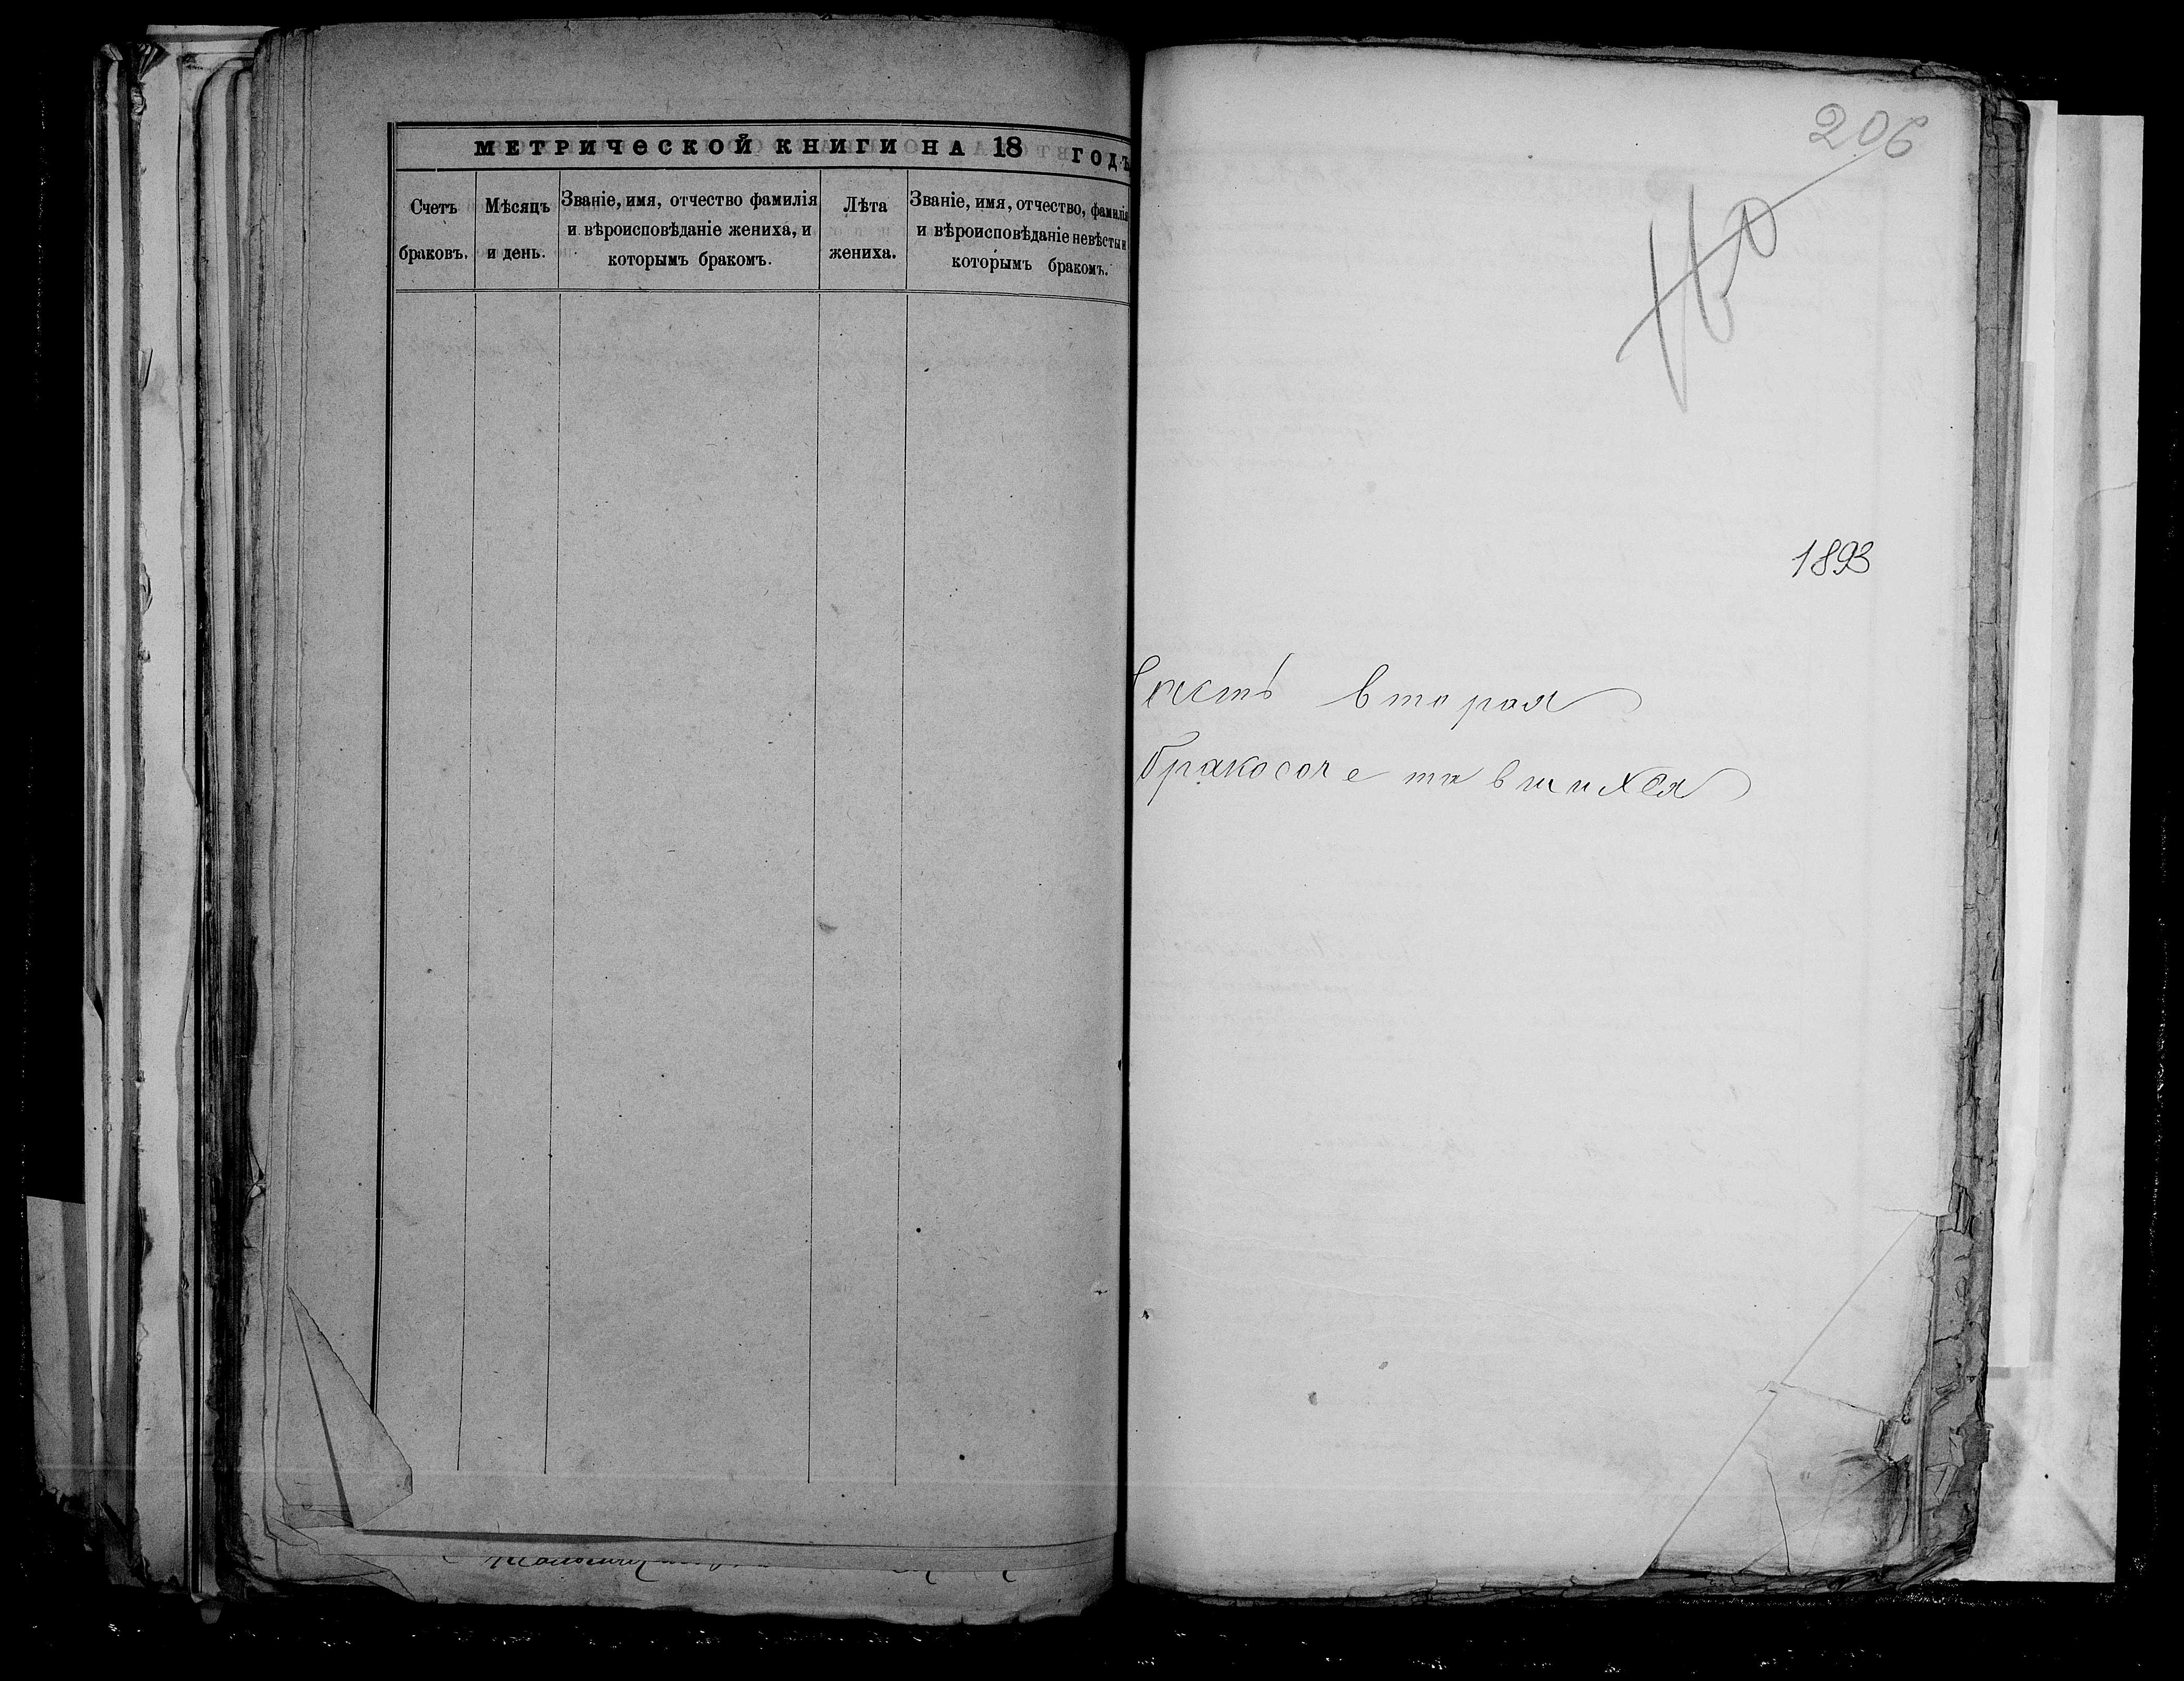 МЕТРИЧЕСКОЙ КНИГИ НА 18 ГОДЪ
Счетъ браковъ.
Мѣсяцъ и день.
Званіе, имя, отчество фамилія
и вѣроисповѣданіе жениха, и
которымъ бракомъ.
Лѣта
жениха.
Званіе, имя, отчество, фамилія
и вѣроисповѣданіе невѣсты и
которымъ бракомъ.
206
1893
Часть вторая
бракосочетавшихся